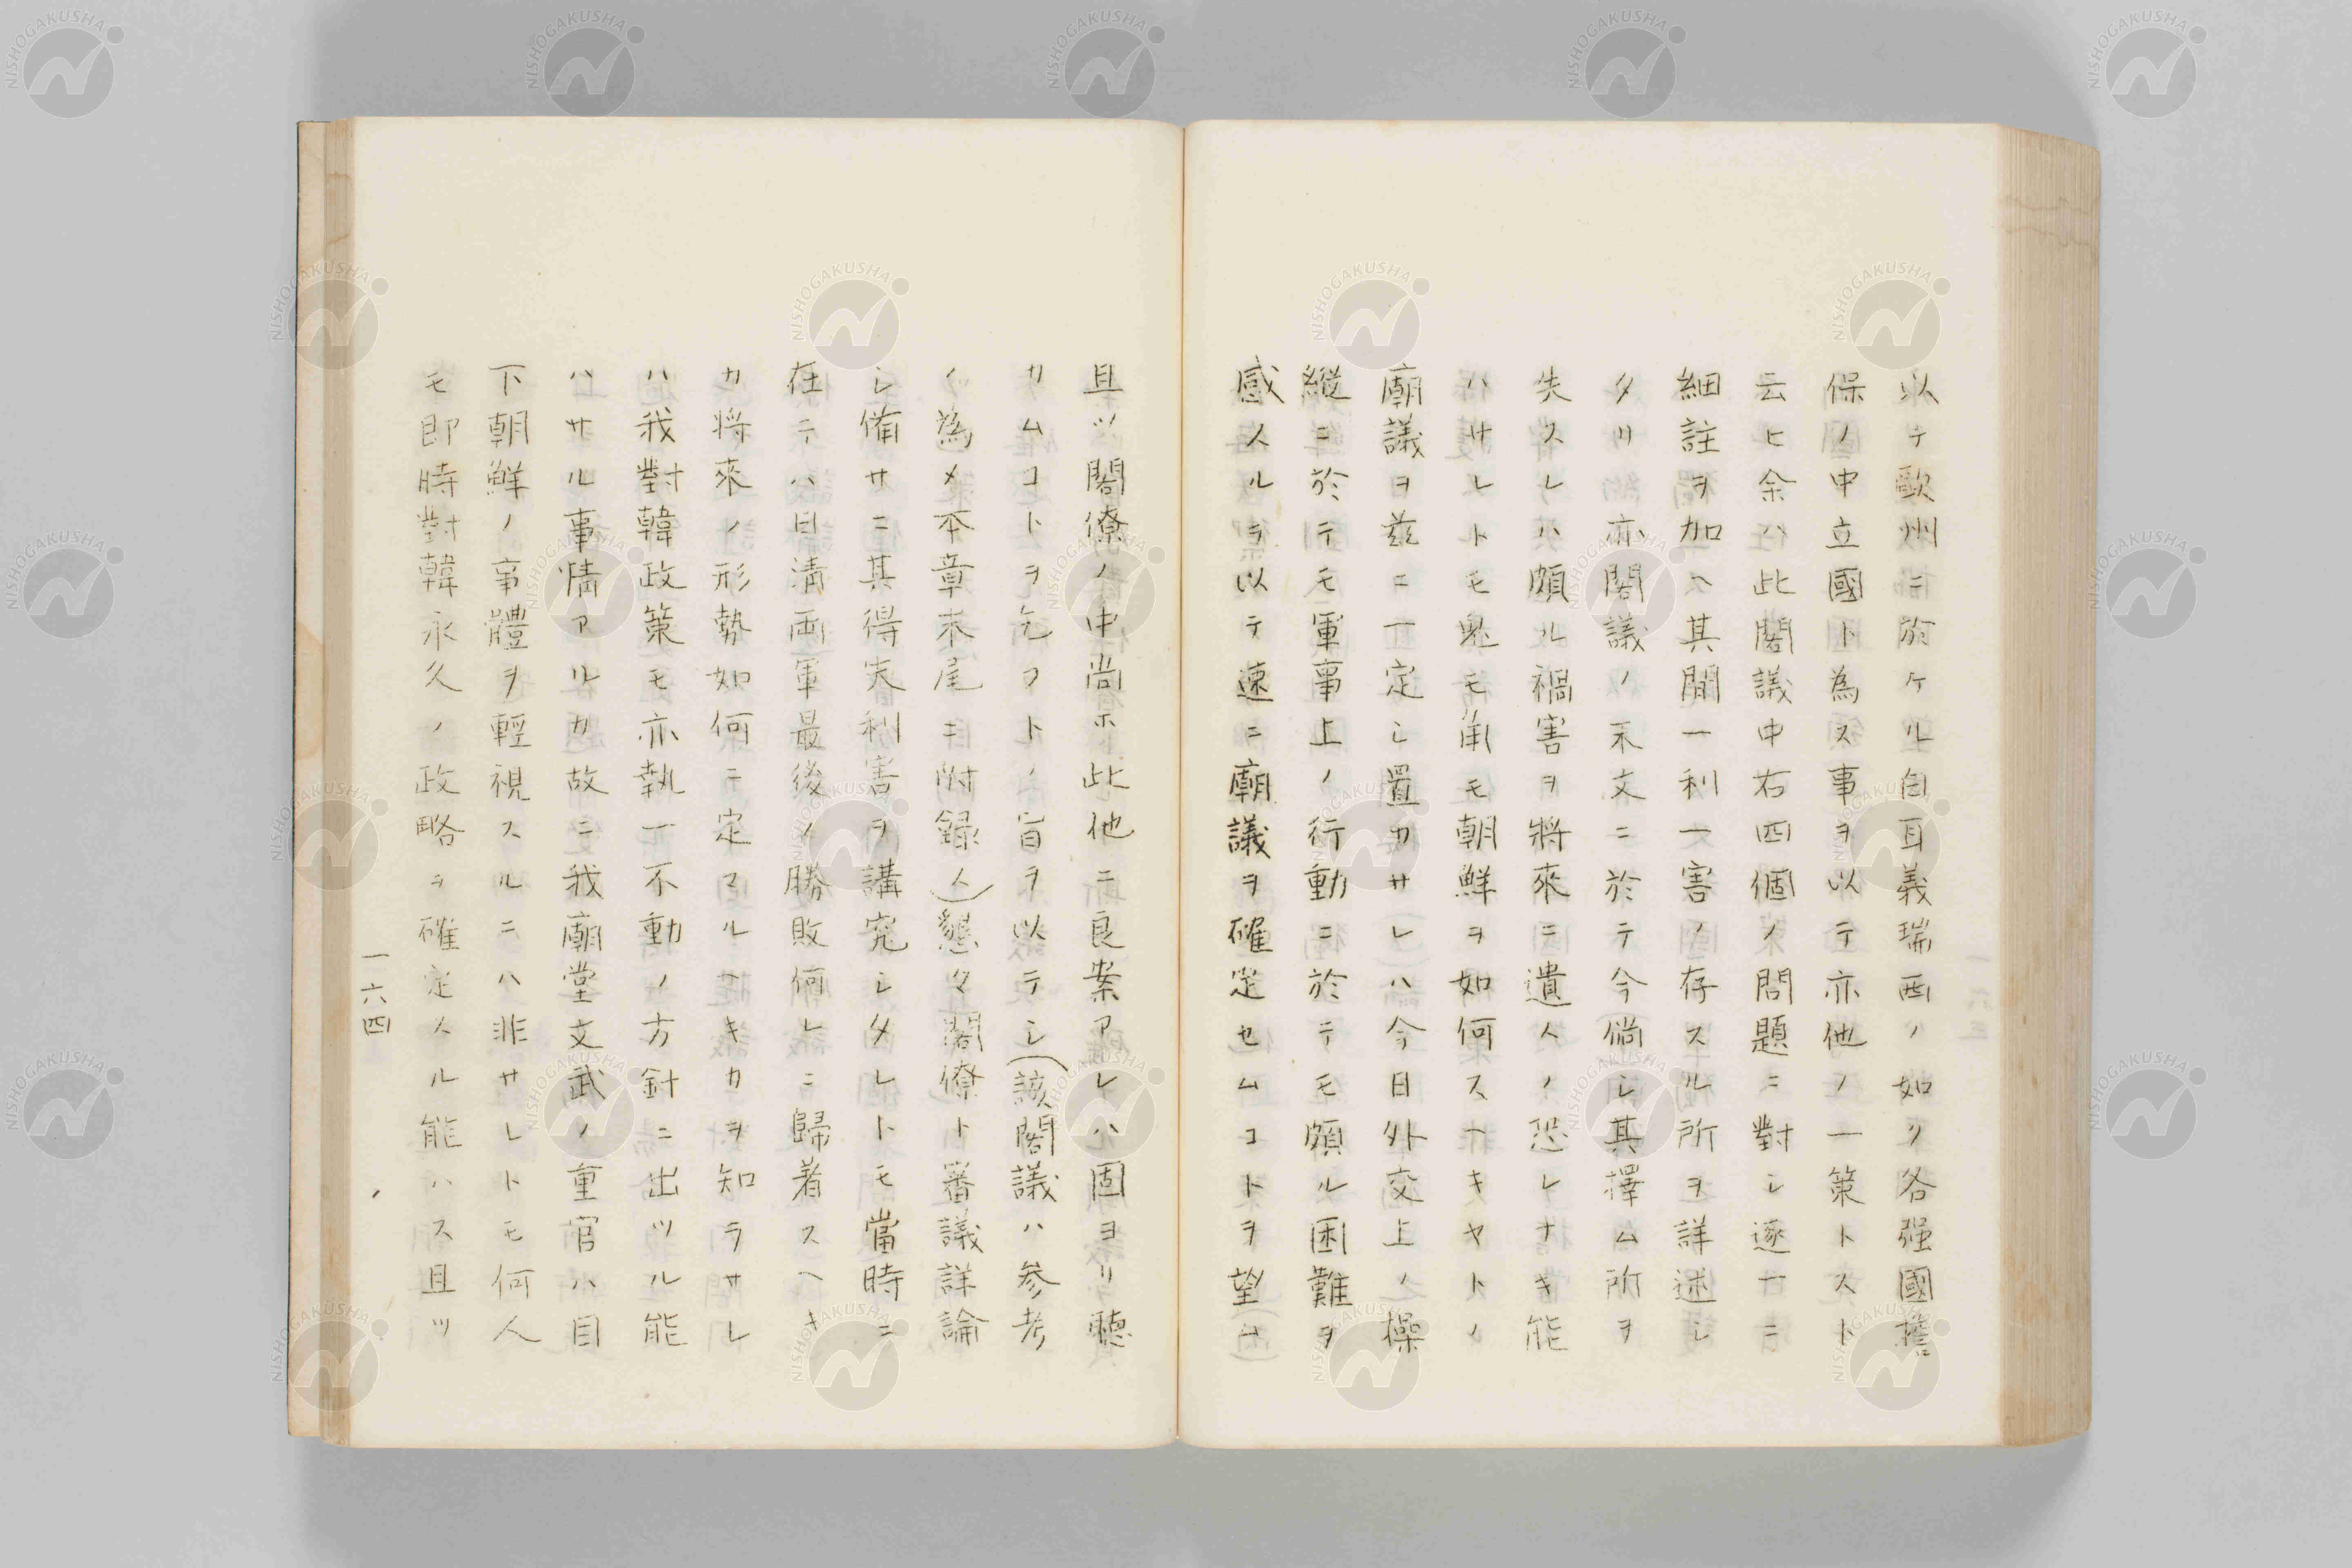 以テ歐州ニ於ケル白耳義瑞西ノ如ク各强國擔
保ノ中立國ト為ス事ヲ以テ亦他ノ一策トスト
云ヒ余ハ此閣議中右四個ノ問題ニ對シ逐一ニ
細註ヲ加ヘ其間一利一害ノ存スル所ヲ詳述シ
タリ亦閣議ノ末文ニ於テ今倘シ其擇ム所ヲ
失スレハ頗ル禍害ヲ將來ニ遺スノ恐レナキ能
ハサレトモ兎モ角モ朝鮮ヲ如何スヘキヤトノ
廟議ヲ茲ニ一定シ置カサレハ今日外交上ノ操
縱ニ於テモ軍事上ノ行動ニ於テモ頗ル困難ヲ
感スルヲ以テ速ニ廟議ヲ確定セムコトヲ望ム
且ツ閣僚ノ中尚ホ此他ニ良案アレハ固ヨリ聽
カムコトヲ乞フトノ旨ヲ以テシ(該閣議ハ参考
ノ為メ本章末尾ニ附録ス)懇々閣僚ト審議詳論
シ備サニ其得失利害ヲ講究シタレトモ當時ニ
在テハ日淸両軍最後ノ勝敗何レニ歸着スヘキ
カ將來ノ形勢如何ニ定マルヘキカヲ知ラサレ
ハ我對韓政策モ亦執一不動ノ方針ニ出ツル能
ハサル事情アルカ故ニ我廟堂文武ノ重官ハ目
下朝鮮ノ事體ヲ輕視スルニハ非サレトモ何人
モ即時對韓永久ノ政略ヲ確定スル能ハス且ツ
一六四
NISHOGAKUSHA